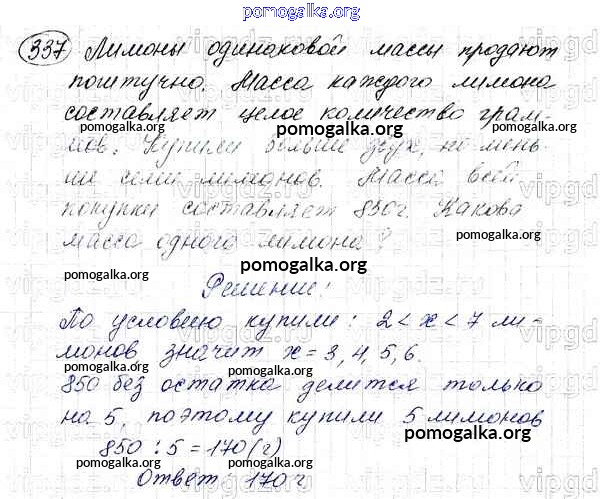 pomogalka.org
337 Лимоны одинаковой массы продают
поштучно. Масса каждого лимона
составляет целое количество грам-
pomogalka.org pomogalka.org pomogalka.org
мов. Купили больше двух, но мень-
ше семи лимонов. Масса всей
покупки составляет 850г. Какова
pomogalka.org
масса одного лимона?
pomogalka.org pomogalka.org
Решение:
По условию купили: 2 < x < 7 ли-
монов значит x = 3, 4, 5, 6.
pomogalka.org pomogalka.org
850 без остатка делится только
на 5, поэтому купили 5 лимонов
850 : 5 = 170 (г)
pomogalka.org
pomogalka.org
Ответ: 170 г
pomogalka.org